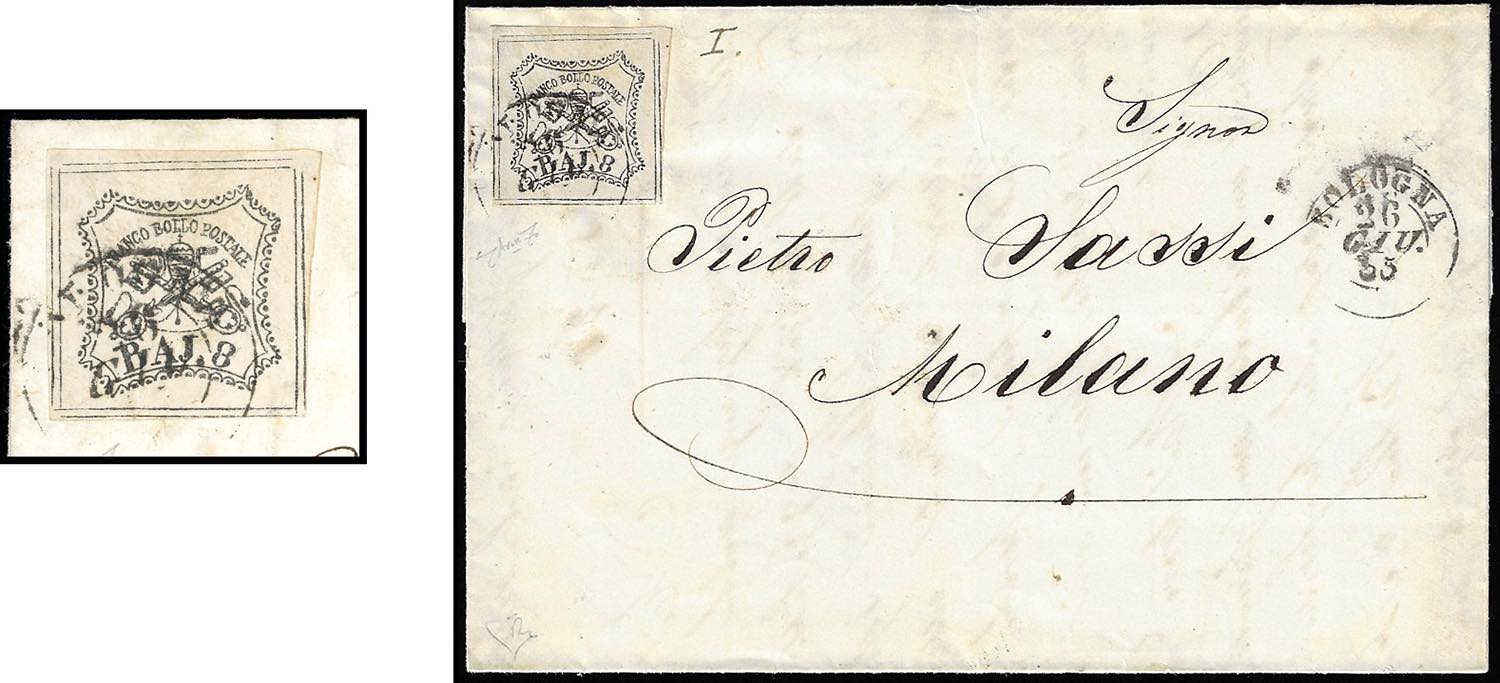 FRANCO BOLLO POSTALE
BAJ. 8
FRANCO BOLLO POSTALE
BAJ. 8
I.
Signor
Pietro Sassi
Milano
BOLOGNA
26
GIU.
55